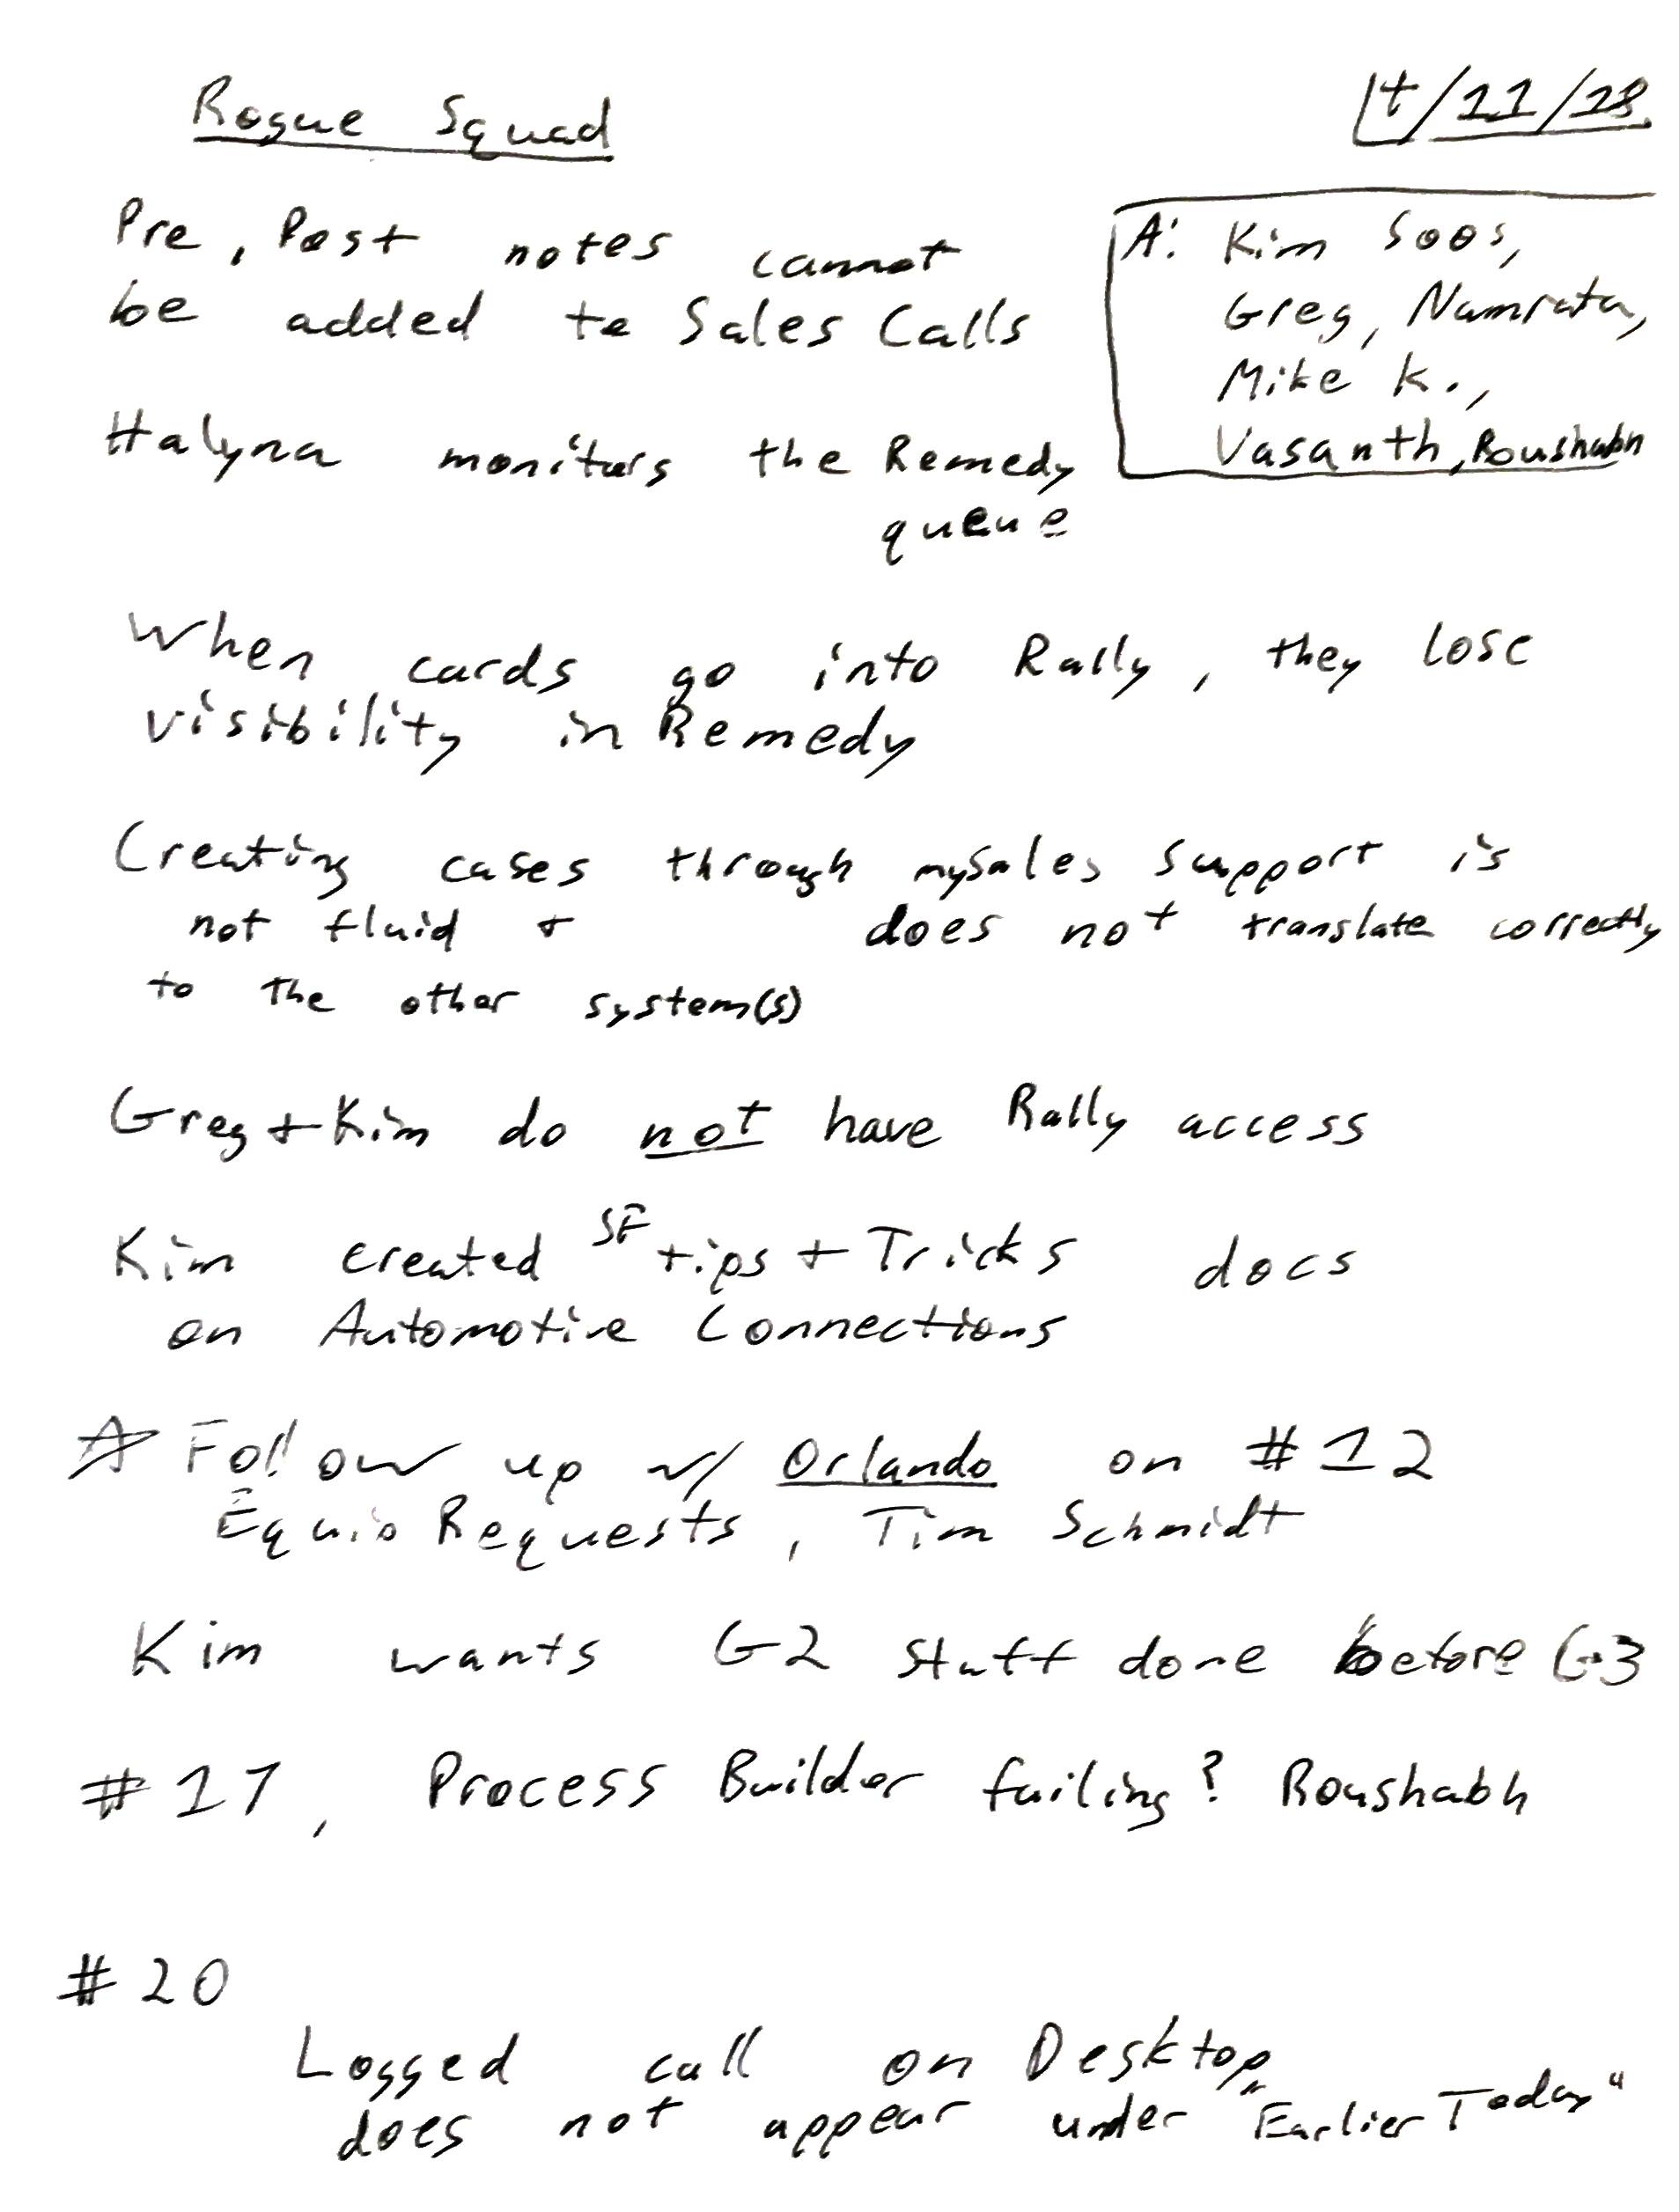 Rogue Squad
4/11/18
Pre, Post notes cannot
be added to Sales Calls
A: Kim Soos,
Greg, Namrata,
Mike K.,
Vasanth, Roushabh
Halyna monitors the Remedy
queue
When cards go into Rally, they lose
visibility in Remedy
Creating cases through mySales Support is
not fluid + does not translate correctly
to the other system(s)
Greg + Kim do not have Rally access
Kim created SF tips + Tricks docs
on Automotive Connections
☆ Follow up w/ Orlando on #12
Equip Requests, Tim Schmidt
Kim wants G2 stuff done before G3
#17, Process Builder failing? Roushabh
#20
Logged call on Desktop
does not appear under "Earlier Today"